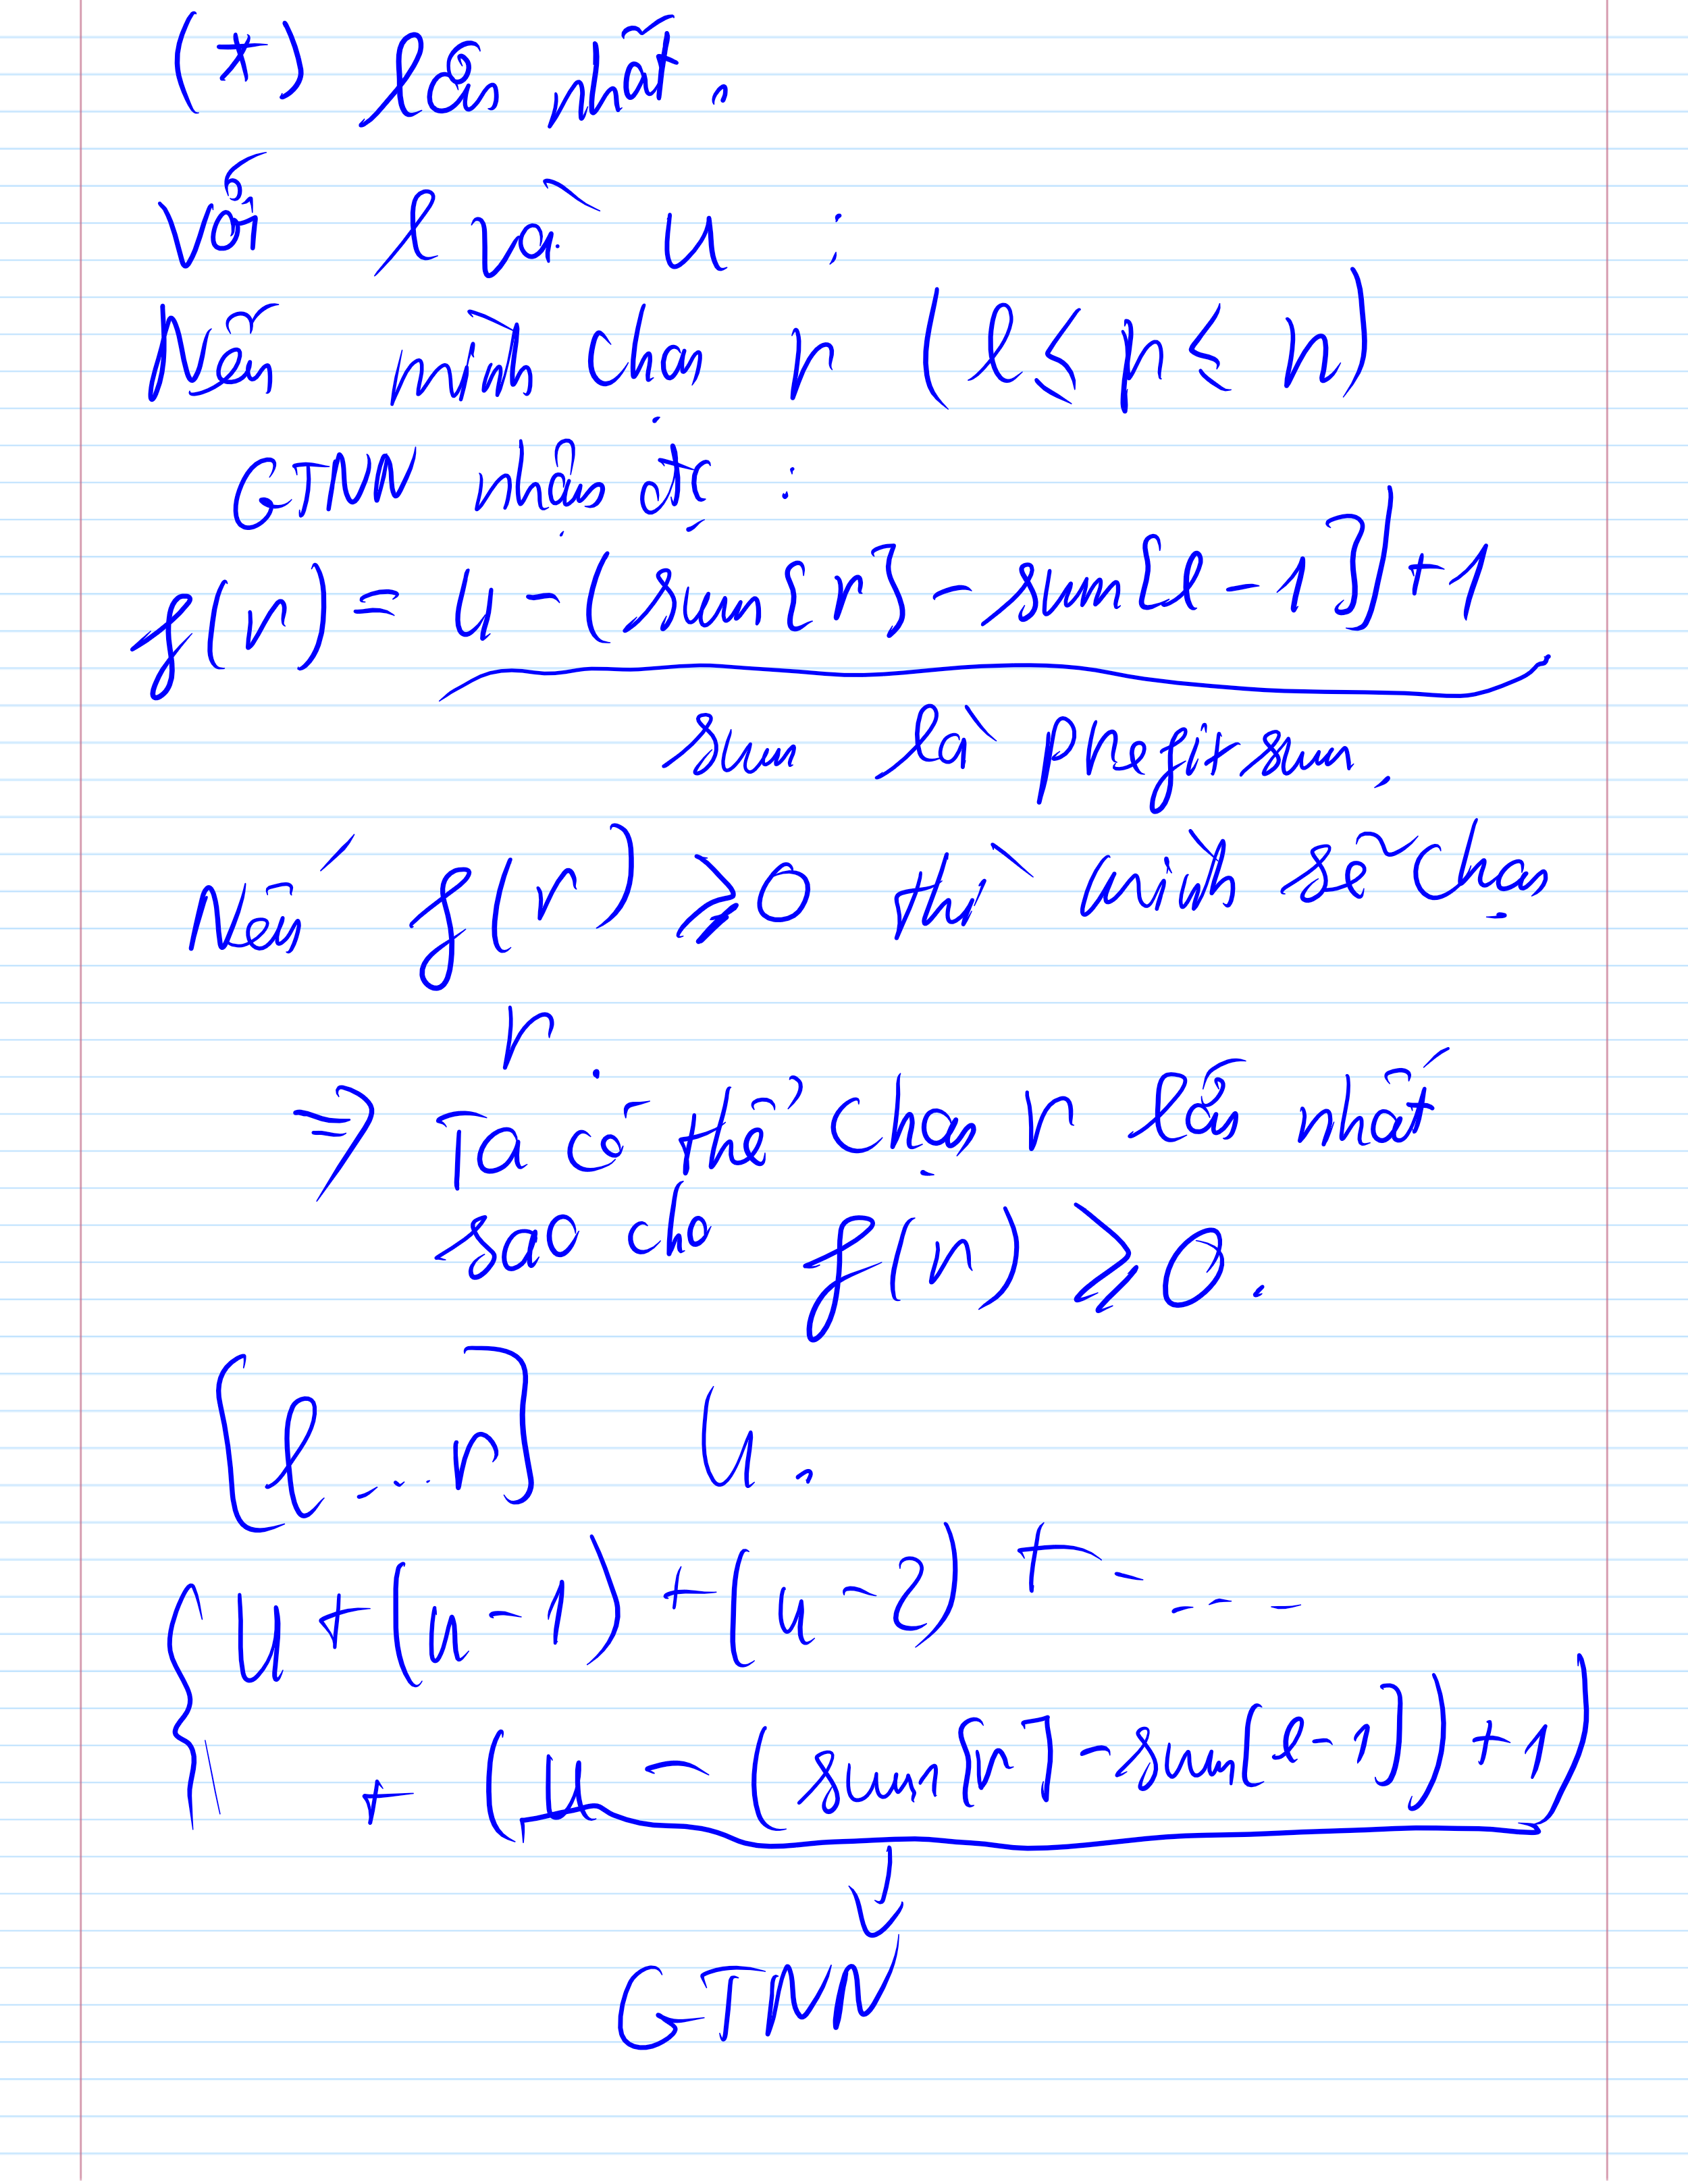 (*) lớn nhất.
Với l và u :
Nếu mình chọn r (l ≤ r ≤ n)
GTNN nhận đc :
f(r) = u - (sum[r] - sum[l - 1]) + 1
sum là prefix sum.
Nếu f(r) ≥ 0 thì mình sẽ chọn
r.
⇒ Ta có thể chọn r lớn nhất
sao cho f(r) ≥ 0.
[l ... r] u.
{ u + (u - 1) + (u - 2) + ...
+ (u - (sum[r] - sum[l - 1]) + 1)
GTNN